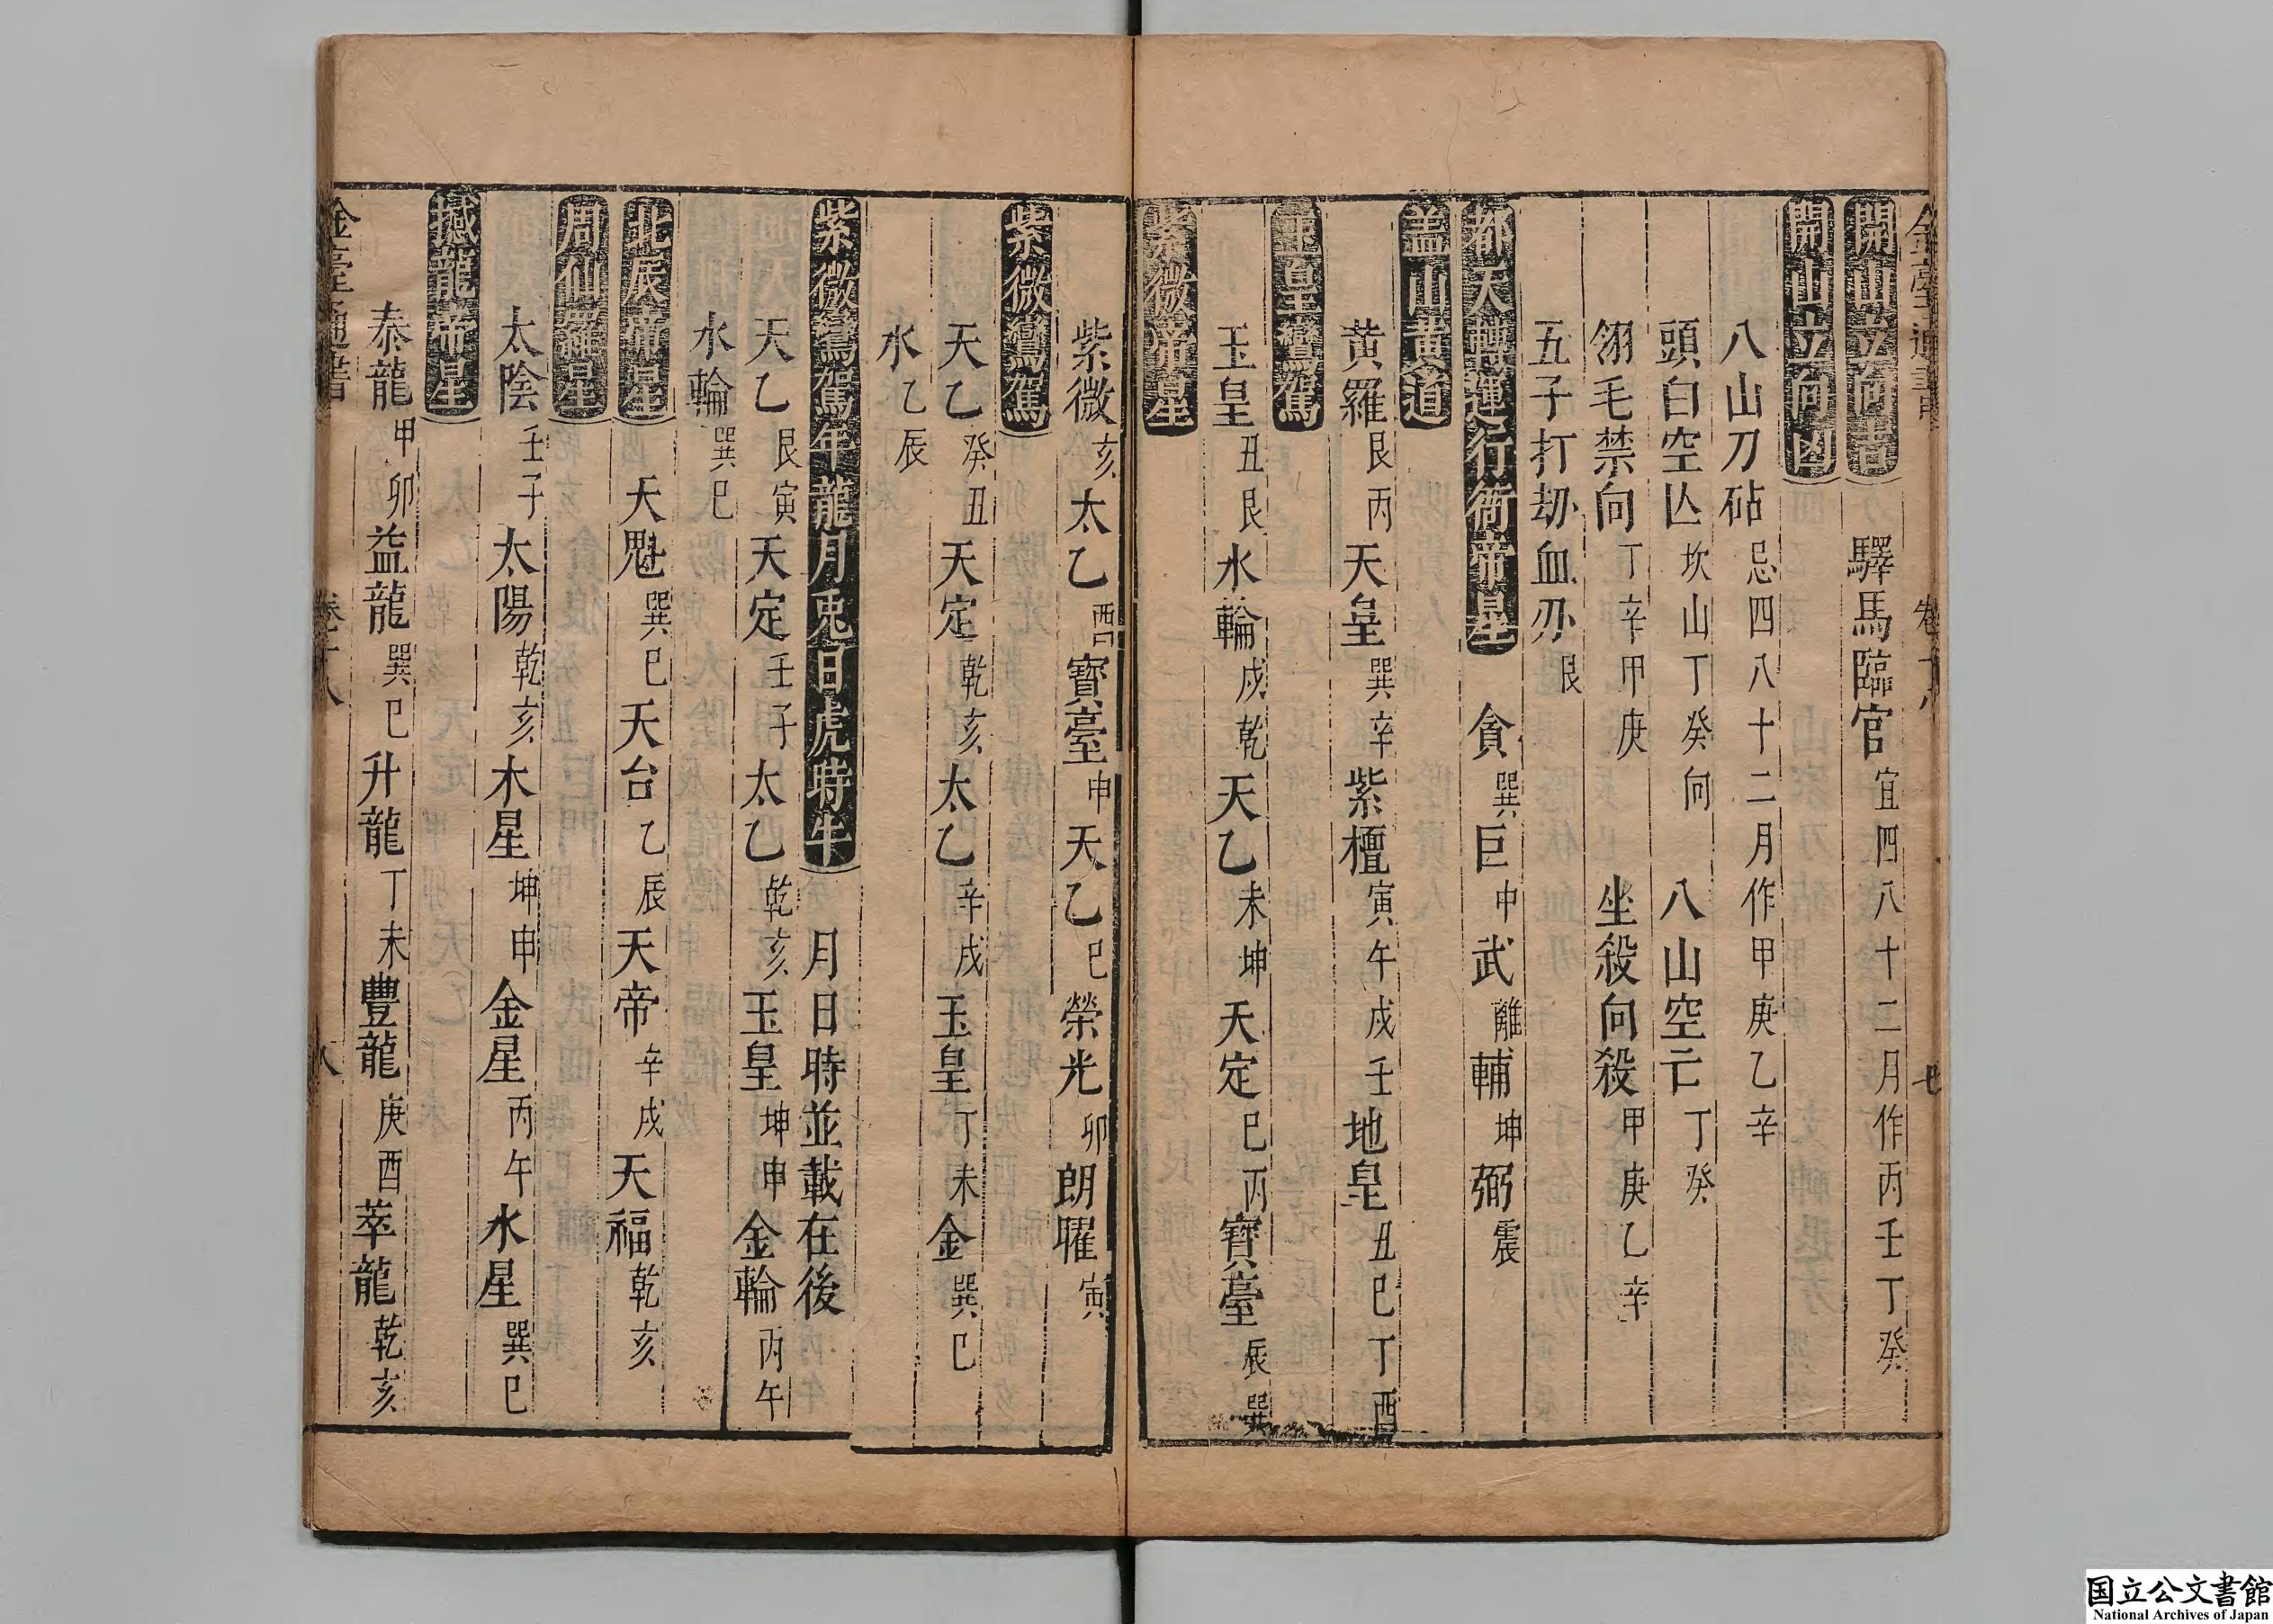 開山立向吉 驛馬臨官 宜四八十二月作丙壬丁癸
開山立向凶
八山刀砧 忌四八十二月作甲庚乙辛
頭白空亾 坎山丁癸向 八山空亡 丁癸
翎毛禁向 丁辛甲庚 坐殺向殺 甲庚乙辛
五子打刧血刃 艮
都天轉運行衙帝星 貪 巽 巨 中 武 離 輔 坤 弼 震
盖山黄道
黄羅 艮丙 天皇 巽辛 紫檀 寅午戌壬 地皇 丑巳丁酉
玉皇鸞駕
玉皇 丑艮 水輪 戌乾 天乙 未坤 天定 巳丙 寶臺 辰巽
紫微帝星
紫微 亥 太乙 酉 寶臺 申 天乙 巳 榮光 卯 朗曜 寅
紫微鸞駕
天乙 癸丑 天定 乾亥 太乙 辛戌 玉皇 丁未 金 巽巳
水 乙辰
紫微鸞駕年龍月兎日虎時牛 月日時並載在後
天乙 艮寅 天定 壬子 太乙 乾亥 玉皇 坤申 金輪 丙午
水輪 巽巳
北辰帝星 天魁 巽巳 天台 乙辰 天帝 辛戌 天福 乾亥
周仙羅星
太陰 壬子 太陽 乾亥 木星 坤申 金星 丙午 水星 巽巳
撼龍帝星
泰龍 甲卯 益龍 巽巳 升龍 丁未 豐龍 庚酉 萃龍 乾亥
国立公文書館
National Archives of Japan